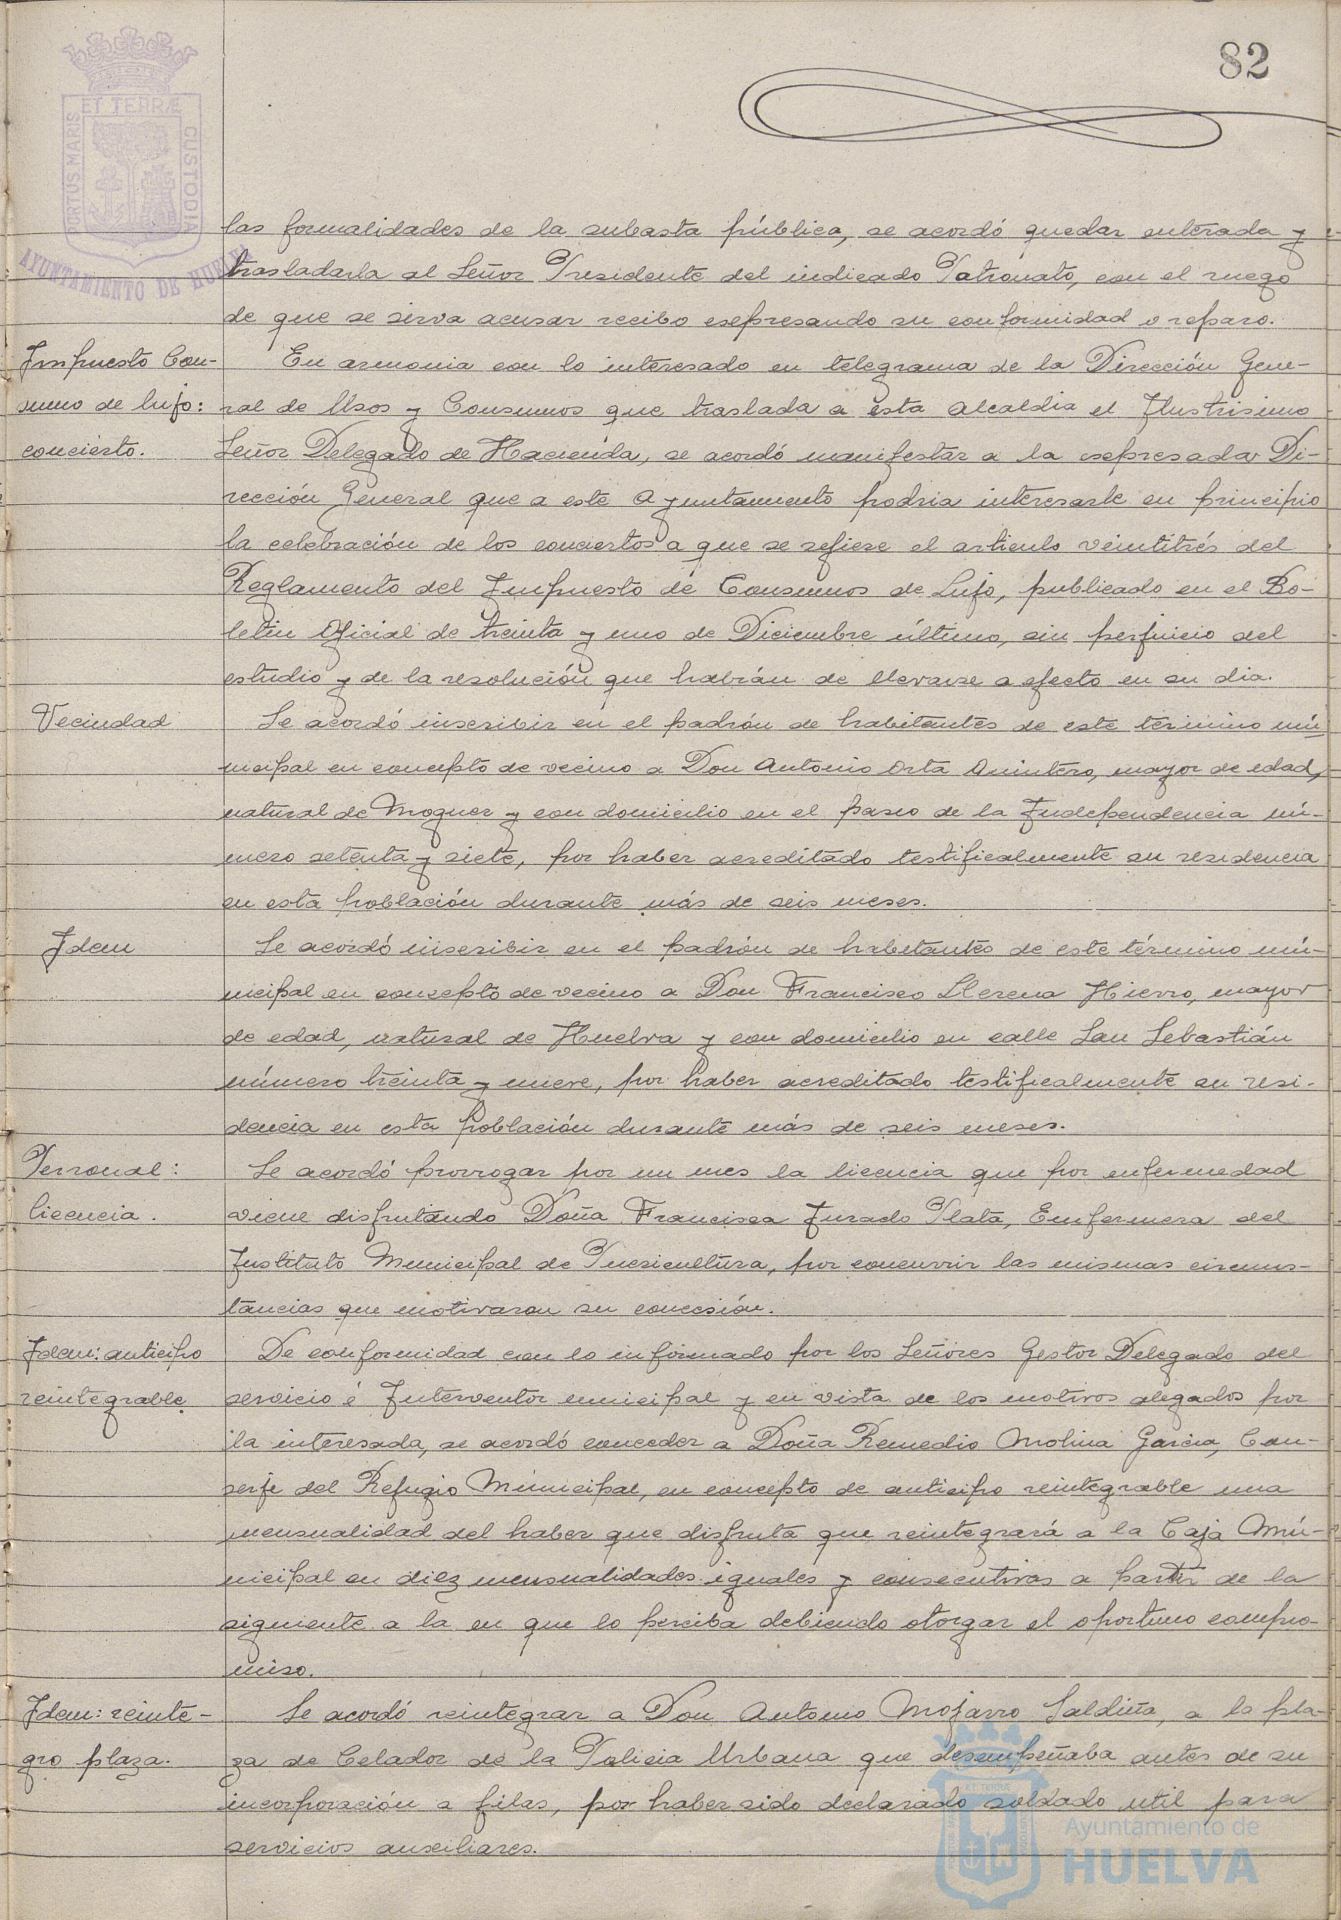 82
ET TERRÆ
PORTUS MARIS
CUSTODIA
AYUNTAMIENTO DE HUELVA
las formalidades de la subasta pública, se acordó quedar enterada y
trasladarla al Señor Presidente del indicado Patronato, con el ruego
de que se sirva acusar recibo expresando su conformidad o reparo.
Impuesto Con-
sumo de lujo:
concierto.
En armonia con lo interesado en telegrama de la Dirección Gene-
ral de Usos y Consumos que traslada a esta Alcaldia el Ilustrisimo
Señor Delegado de Hacienda, se acordó manifestar a la expresada Di-
rección General que a este Ayuntamiento podria interesarle en principio
la celebración de los conciertos a que se refiere el articulo veintitrés del
Reglamento del Impuesto de Consumos de Lujo, publicado en el Bo-
letin Oficial de treinta y uno de Diciembre último, sin perjuicio del
estudio y de la resolución que habrán de llevarse a efecto en su dia.
Vecindad
Se acordó inscribir en el padrón de habitantes de este termino mu
nicipal en concepto de vecino a Don Antonio Orta Quintero, mayor de edad,
natural de Moguer y con domicilio en el paseo de la Independencia nú-
mero setenta y siete, por haber acreditado testificalmente su residencia
en esta población durante más de seis meses.
Idem
Se acordó inscribir en el padrón de habitantes de este término mu-
nicipal en concepto de vecino a Don Francisco Llerena Hierro, mayor
de edad, natural de Huelva y con domicilio en calle San Sebastián
número treinta y nueve, por haber acreditado testificalmente su resi-
dencia en esta población durante más de seis meses.
Personal:
licencia.
Se acordó prorrogar por un mes la licencia que por enfermedad
viene disfrutando Doña Francisca Jurado Plata, Enfermera del
Instituto Municipal de Puericultura, por concurrir las mismas circuns-
tancias que motivaron su concesión.
Idem: anticipo
reintegrable
De conformidad con lo informado por los Señores Gestor Delegado del
servicio é Interventor municipal y en vista de los motivos alegados por
la interesada, se acordó conceder a Doña Remedio Molina Garcia, Con-
serje del Refugio Municipal, en concepto de anticipo reintegrable una
mensualidad del haber que disfruta que reintegrará a la Caja Mu-
nicipal en diez mensualidades iguales y consecutivas a partir de la
siguiente a la en que lo perciba debiendo otorgar el oportuno compro-
miso.
Idem: reinte-
gro plaza.
Se acordó reintegrar a Don Antonio Mojarro Saldiña, a la pla-
za de Celador de la Policia Urbana que desempeñaba antes de su
incorporación a filas, por haber sido declarado soldado util para
servicios auxiliares.
Ayuntamiento de
HUELVA